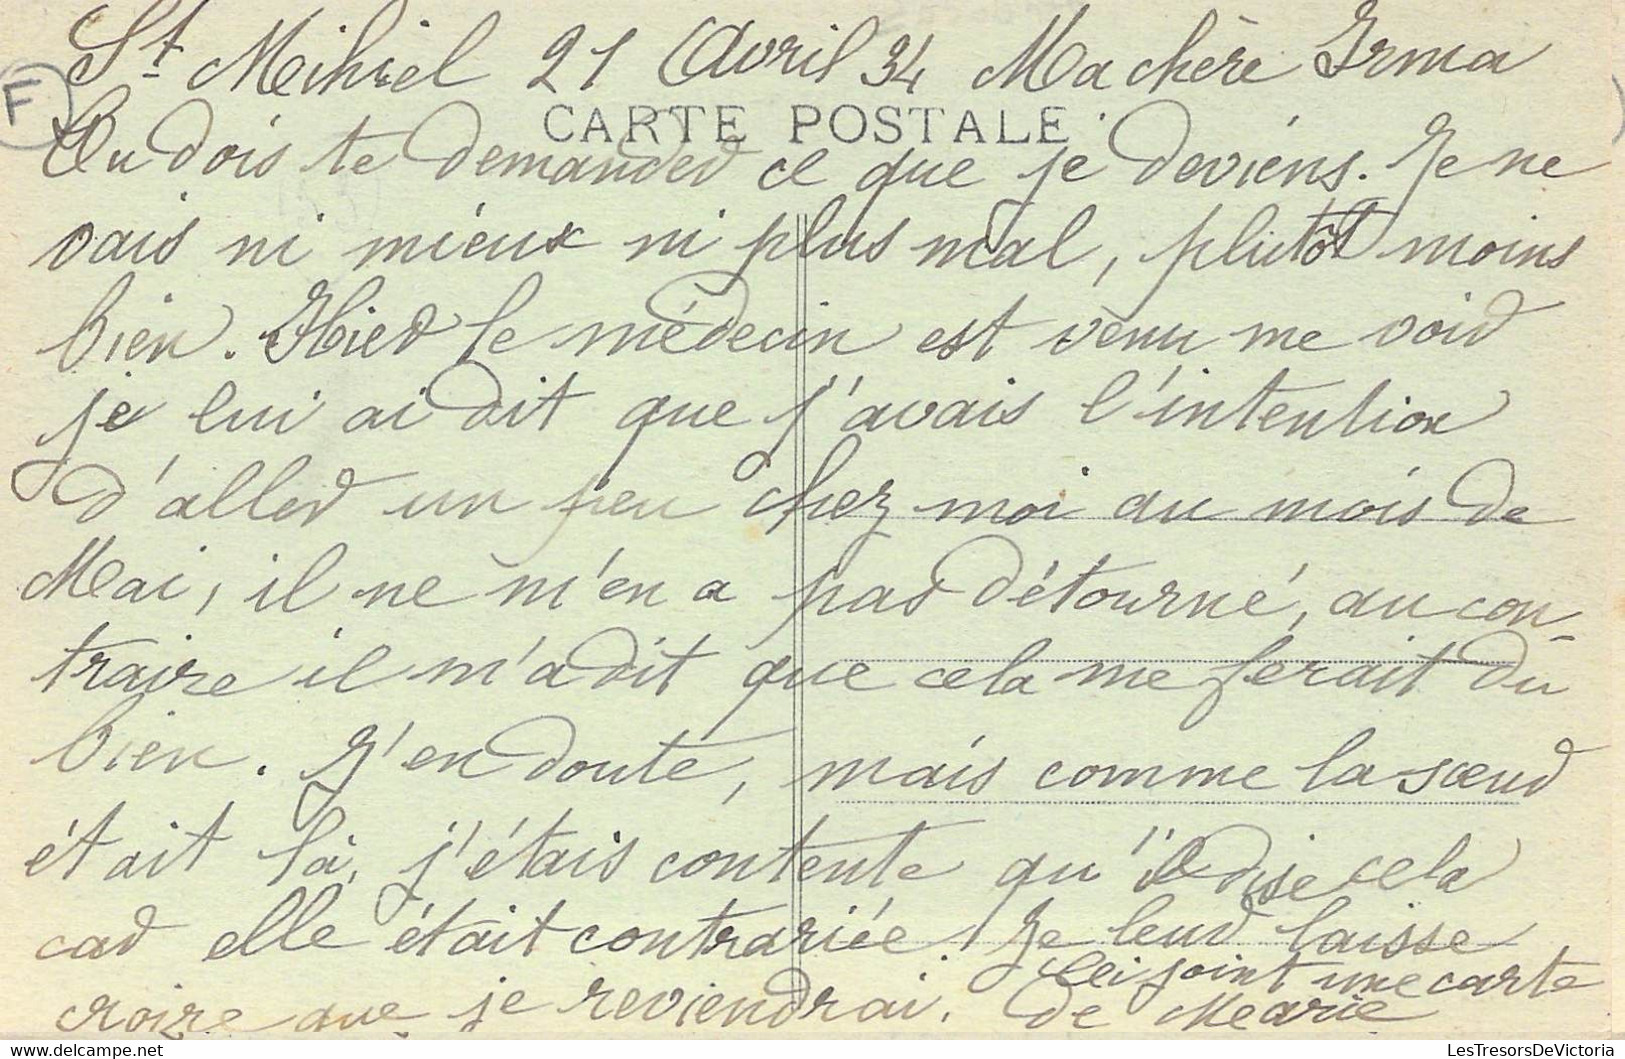 St Mihiel 21 Avril 34 Ma chère Irma
F
CARTE POSTALE
Tu dois te demander ce que je deviens. Je ne
vais ni mieux ni plus mal, plutôt moins
bien. Hier le médecin est venu me voir
je lui ai dit que j'avais l'intention
d'aller un peu chez moi au mois de
Mai, il ne m'en a pas détourné, au con-
traire il m'a dit que cela me ferait du
bien. J'en doute, mais comme la sœur
était là, j'étais contente qu'il dise cela
car elle était contrariée. Je leur laisse
croire que je reviendrai.
Ci joint une carte
de Marie
LesTresorsDeVictoria